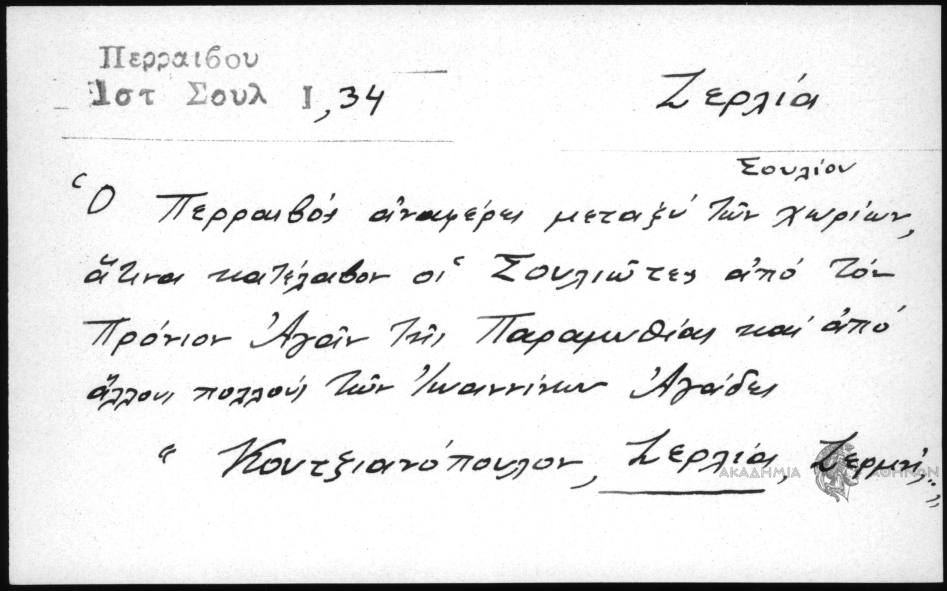 Περραιβου
Ιστ Σουλ Ι, 34
Ζερλιά
Σουλίου
Ὁ Περραιβός ἀναφέρει μεταξύ τῶν χωρίων,
ἅτινα κατέλαβον οἱ Σουλιῶτες ἀπό τόν
Πρόνιον Ἀγᾶν τῆς Παραμυθίας καί ἀπό
ἄλλους πολλούς τῶν Ἰωαννίνων Ἀγάδες
" Κουτζιανόπουλον, Ζερλιά, Ζερμή.."
ΑΚΑΔΗΜΙΑ ΑΘΗΝΩΝ